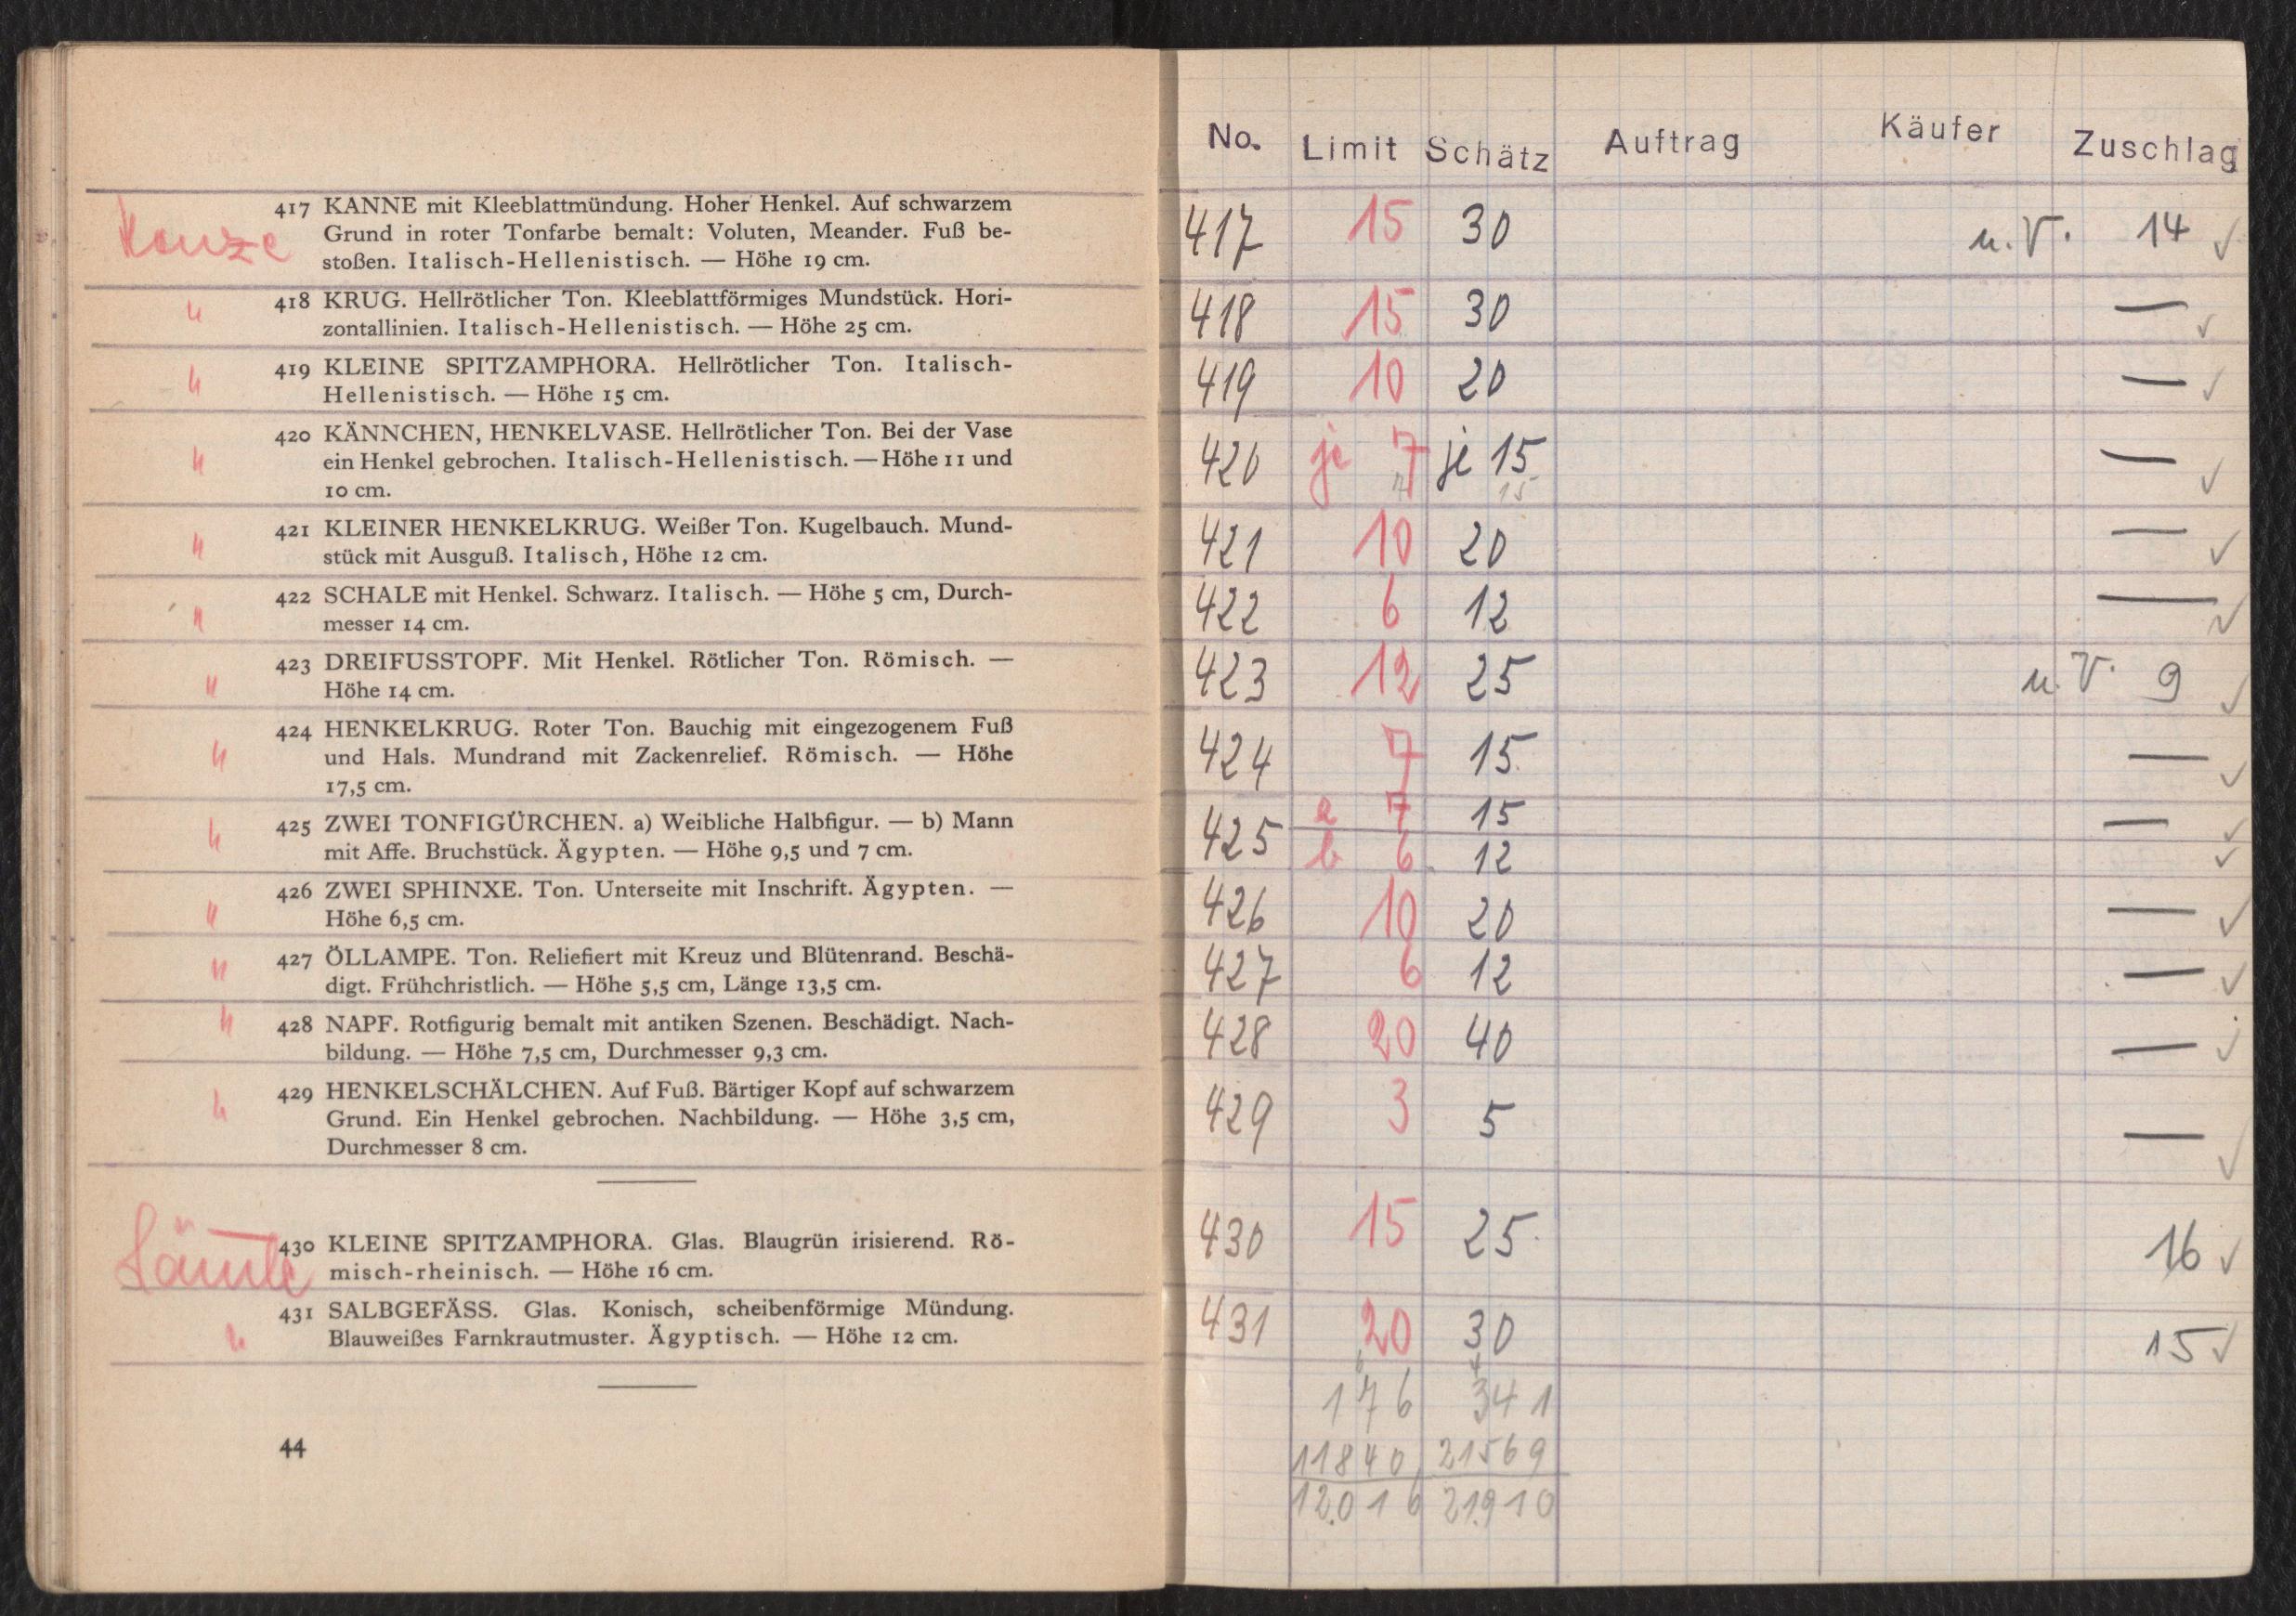 Konze 417 KANNE mit Kleeblattmündung. Hoher Henkel. Auf schwarzem
Grund in roter Tonfarbe bemalt: Voluten, Meander. Fuß be-
stoßen. Italisch-Hellenistisch. — Höhe 19 cm.
" 418 KRUG. Hellrötlicher Ton. Kleeblattförmiges Mundstück. Hori-
zontallinien. Italisch-Hellenistisch. — Höhe 25 cm.
" 419 KLEINE SPITZAMPHORA. Hellrötlicher Ton. Italisch-
Hellenistisch. — Höhe 15 cm.
" 420 KÄNNCHEN, HENKELVASE. Hellrötlicher Ton. Bei der Vase
ein Henkel gebrochen. Italisch-Hellenistisch. — Höhe 11 und
10 cm.
" 421 KLEINER HENKELKRUG. Weißer Ton. Kugelbauch. Mund-
stück mit Ausguß. Italisch, Höhe 12 cm.
" 422 SCHALE mit Henkel. Schwarz. Italisch. — Höhe 5 cm, Durch-
messer 14 cm.
" 423 DREIFUSSTOPF. Mit Henkel. Rötlicher Ton. Römisch. —
Höhe 14 cm.
" 424 HENKELKRUG. Roter Ton. Bauchig mit eingezogenem Fuß
und Hals. Mundrand mit Zackenrelief. Römisch. — Höhe
17,5 cm.
" 425 ZWEI TONFIGÜRCHEN. a) Weibliche Halbfigur. — b) Mann
mit Affe. Bruchstück. Ägypten. — Höhe 9,5 und 7 cm.
" 426 ZWEI SPHINXE. Ton. Unterseite mit Inschrift. Ägypten. —
Höhe 6,5 cm.
" 427 ÖLLAMPE. Ton. Reliefiert mit Kreuz und Blütenrand. Beschä-
digt. Frühchristlich. — Höhe 5,5 cm, Länge 13,5 cm.
" 428 NAPF. Rotfigurig bemalt mit antiken Szenen. Beschädigt. Nach-
bildung. — Höhe 7,5 cm, Durchmesser 9,3 cm.
" 429 HENKELSCHÄLCHEN. Auf Fuß. Bärtiger Kopf auf schwarzem
Grund. Ein Henkel gebrochen. Nachbildung. — Höhe 3,5 cm,
Durchmesser 8 cm.
430 KLEINE SPITZAMPHORA. Glas. Blaugrün irisierend. Rö-
misch-rheinisch. — Höhe 16 cm.
" 431 SALBGEFÄSS. Glas. Konisch, scheibenförmige Mündung.
Blauweißes Farnkrautmuster. Ägyptisch. — Höhe 12 cm.
44
No. Limit Schätz Auftrag Käufer Zuschlag
417 15 30 u. V. 14 ✓
418 15 30 — ✓
419 10 20 — ✓
420 je 7 je 15 — ✓
7 15
421 10 20 — ✓
422 6 12 — ✓
423 12 25 u. V. 9 ✓
424 7 15 — ✓
425 a 7 15 — ✓
b 6 12 ✓
426 10 20 — ✓
427 6 12 — ✓
428 20 40 — ✓
429 3 5 — ✓
430 15 25 16 ✓
431 20 30 15 ✓
176 341
11840 21569
12.016 21910